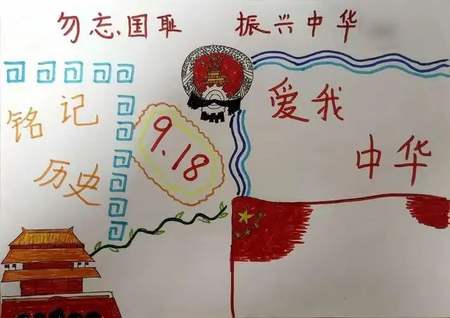 勿忘国耻 振兴中华
铭记
历史
9.18
爱我
中华